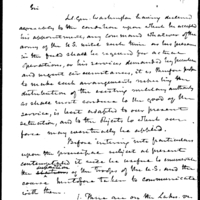 Sir
Lt Gen. Washington having deemed
necessary to the condition upon which he accepted
his appointment, any command whatever of the
army of the U.S. until such time as his presence
in the field shall be required for actual
operations, or his services demanded by peculiar
and urgent circumstances, it is therefore proper
to make such arrangements relative to the
distribution of the existing military authority
as shall most conduce to the good of the
service, is best adapted to our present
situation, and the objects to which our
force may eventually be applied.
Before entering into particulars
upon the principal subject at present
contemplated it will be proper to enumerate
the stations of the troops of the U.S. and the
source heretofore taken to communicate
with them.
1. These are on the Lakes, on